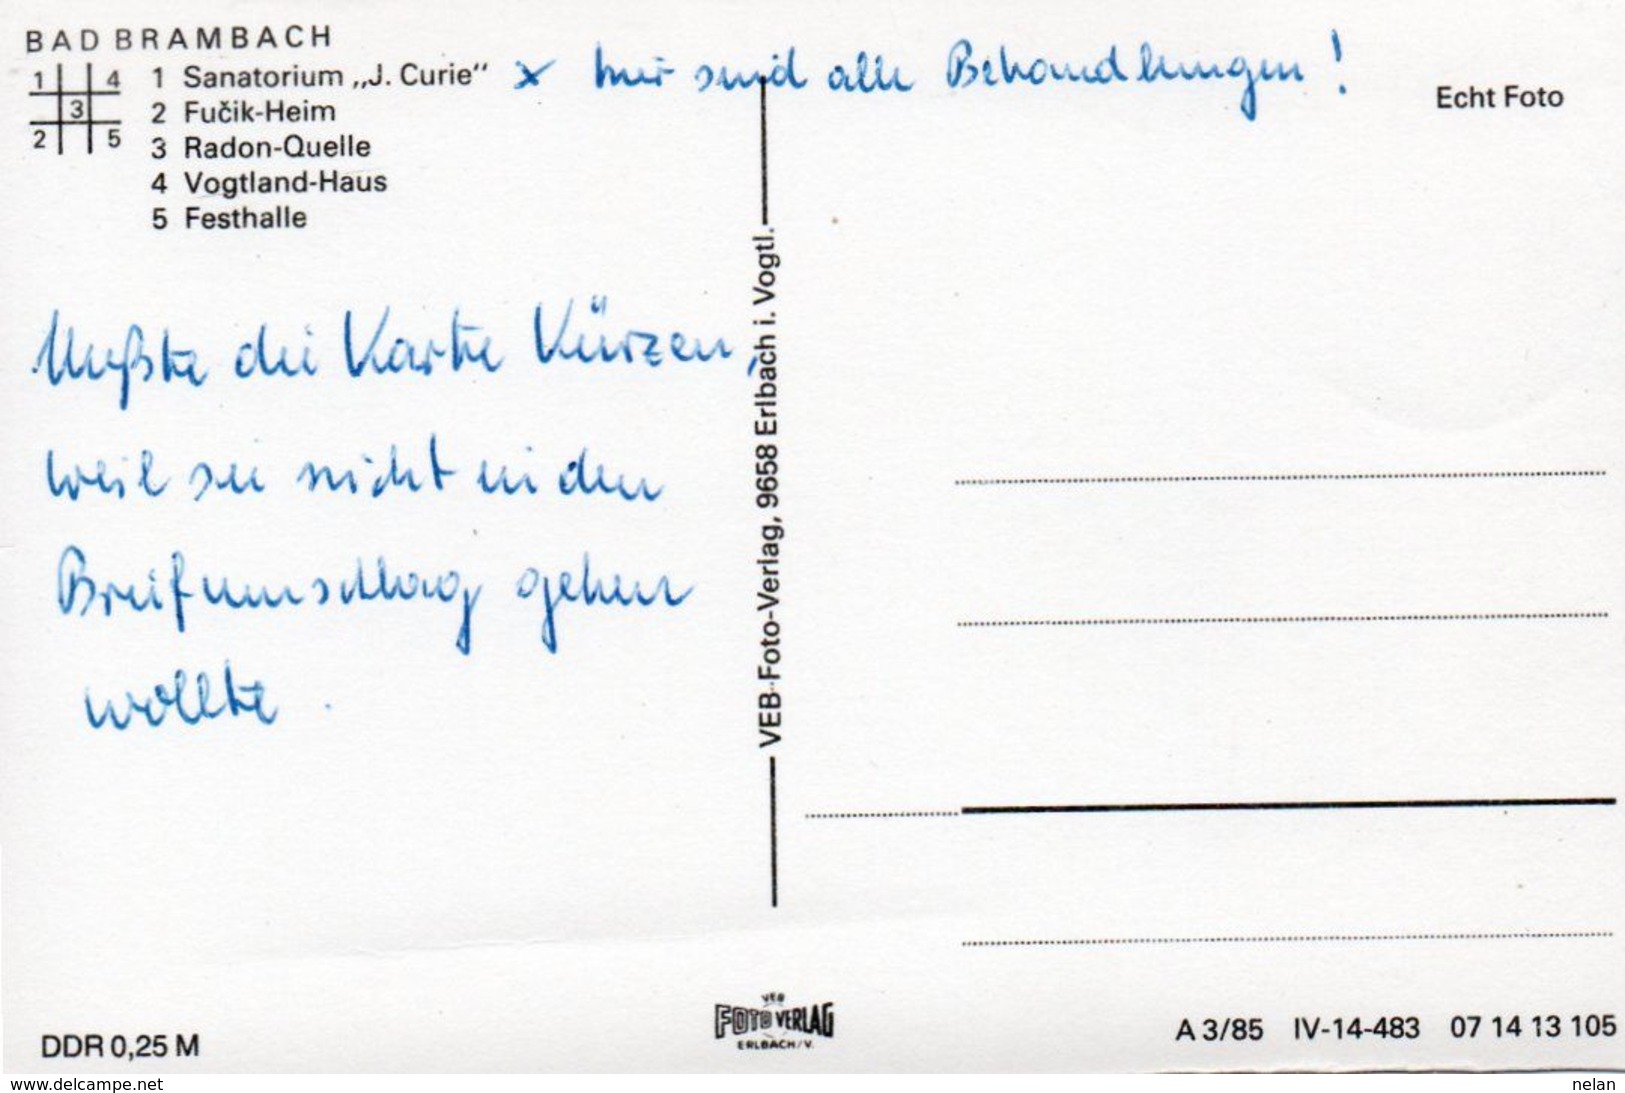 BAD BRAMBACH
1 4
3
2 5
1 Sanatorium „J. Curie" x hier sind alle Behandlungen!
2 Fučik-Heim
3 Radon-Quelle
4 Vogtland-Haus
5 Festhalle
Echt Foto
Mußte die Karte Kürzen,
weil sie nicht in den
Briefumschlag gehen
wollte.
VEB-Foto-Verlag, 9658 Erlbach i. Vogtl.
DDR 0,25 M
VEB
FOTO VERLAG
ERLBACH/V.
A 3/85 IV-14-483 07 14 13 105
www.delcampe.net
nelan